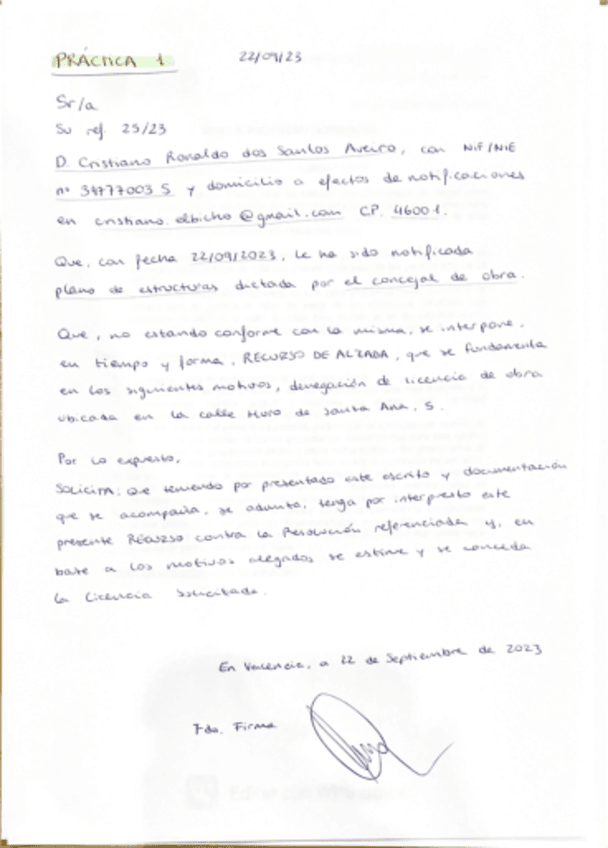 PRÁCTICA 1 22/09/23
Sr/a
Su ref. 25/23
D. Cristiano Ronaldo dos Santos Aveiro, con NIF/NIE
nº 34777003 S y domicilio a efectos de notificaciones
en cristiano.elbicho@gmail.com CP. 46001.
Que, con fecha 22/09/2023, le ha sido notificada
plano de estructuras dictada por el concejal de obra.
Que, no estando conforme con la misma, se interpone,
en tiempo y forma, RECURSO DE ALZADA, que se fundamenta
en los siguientes motivos, denegación de licencia de obra
ubicada en la calle Muro de Santa Ana, 5.
Por lo expuesto,
SOLICITA: Que teniendo por presentado este escrito y documentación
que se acompaña, se adjunta, tenga por interpuesto este
presente RECURSO contra la Resolución referenciada y, en
base a los motivos alegados se estime y se conceda
la licencia solicitada.
En Valencia, a 22 de Septiembre de 2023
Fdo. Firma